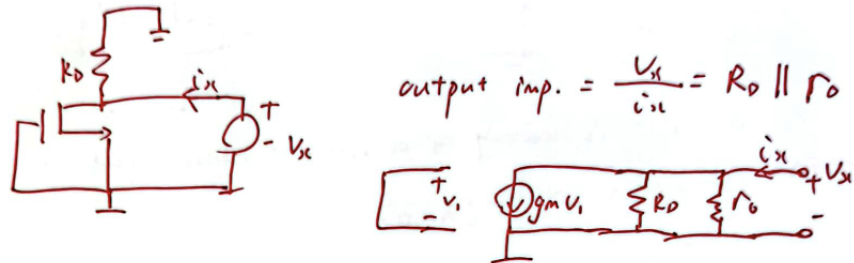 R_D
i_x
+
- V_x
output imp. = V_x / i_x = R_D || r_o
i_x
+
V_1
-
gm V_1
R_D
r_o
+ V_x
-